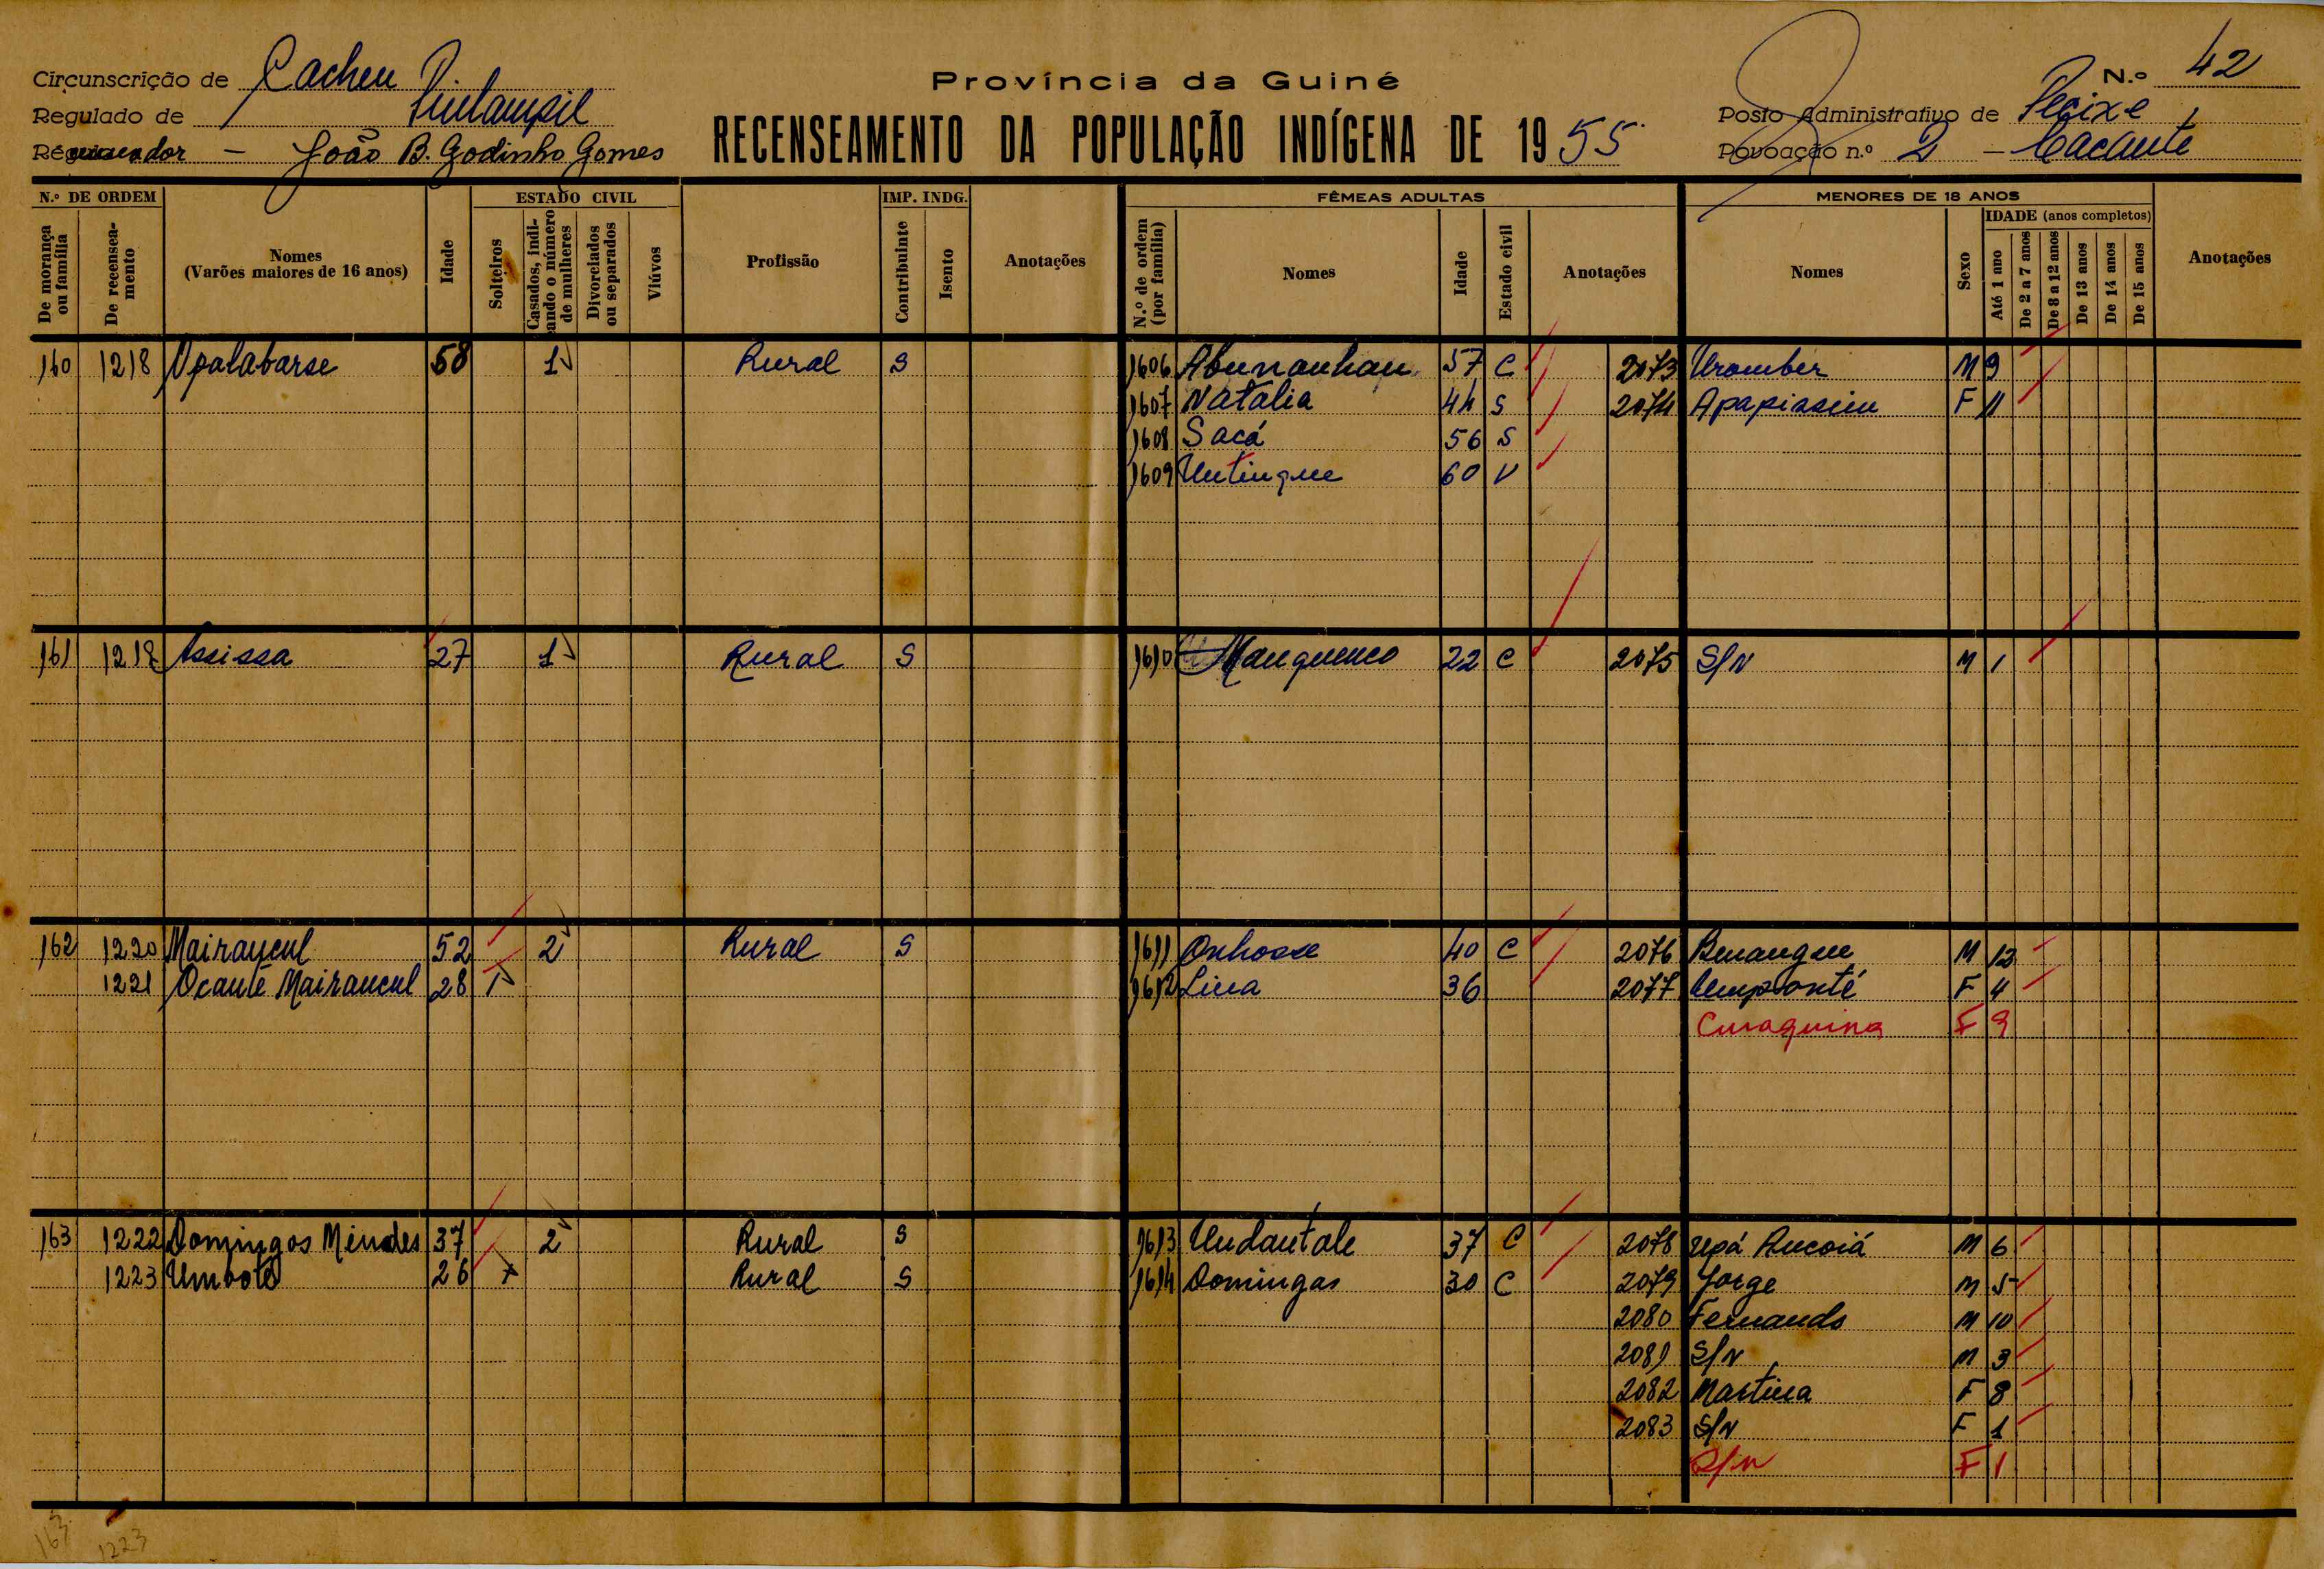 Circunscrição de Cacheu Província da Guiné N.º 42
Regulado de Posto Administrativo de Pecixe
João B. Godinho Gomes RECENSEAMENTO DA POPULAÇÃO INDÍGENA DE 1955 Povoação n.º 2 – Cacante
N.º DE ORDEM ESTADO CIVIL IMP. INDG. FÊMEAS ADULTAS MENORES DE 18 ANOS
De morança ou família De recenseamento Nomes (Varões maiores de 16 anos) Idade Solteiros Casados, indicando o número de mulheres Divorciados ou separados Viúvos Profissão Contribuinte Isento Anotações N.º de ordem (por família) Nomes Idade Estado civil Anotações Nomes Sexo IDADE (anos completos) Até 1 ano De 2 a 7 anos De 8 a 12 anos De 13 anos De 14 anos De 15 anos Anotações
160 1218 Opalabarse 58 1 Rural S 1606 Abunanhau 57 C 2073 Uromber M 9
1607 Natalia 44 S 2074 Apapiassim F 11
1608 Sacá 56 S
1609 Untinque 60 V
161 1218 Assissa 27 1 Rural S 1610 Manquenco 22 C 2075 S/N M 1
162 1220 Mairancul 52 2 Rural S 1611 Onhosse 40 C 2076 Benangue M 12
1221 Ocante Mairancul 28 1 1612 Lina 36 2077 F 4
Curaquina F 9
163 1222 Domingos Mendes 37 2 Rural S 1613 Undantale 37 C 2078 Upá Rucoiá M 6
1223 Umbote 26 Rural S 1614 Domingas 30 C 2079 Jorge M 5
2080 Fernando M 10
2081 S/N M 3
2082 Martina F 8
2083 S/N F 1
S/N F 1
163 1223